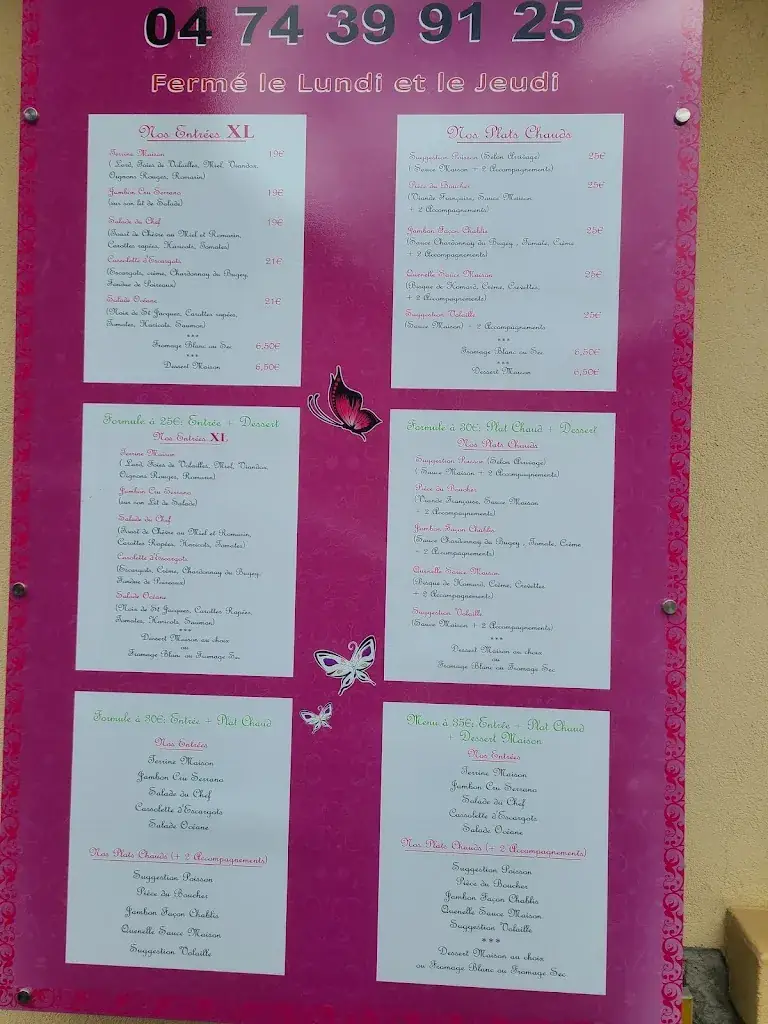 04 74 39 91 25
Fermé le Lundi et le Jeudi
Nos Entrées XL
Terrine Maison 19€
( Lard, Foies de Volailles, Miel, Viandes,
Oignons Rouges, Romarin)
Jambon Cru Serrano 19€
(sur son lit de Salade)
Salade du Chef 19€
(Toast de Chèvre au Miel et Romarin,
Carottes rapées, Haricots, Tomates)
Cassolette d'Escargots 21€
(Escargots, crème, Chardonnay du Bugey,
Fondue de Poireaux)
Salade Océane 21€
(Noix de St Jacques, Carottes rapées,
Tomates, Haricots, Saumon)
***
Fromage Blanc ou Sec 6,50€
***
Dessert Maison 6,50€
Nos Plats Chauds
Suggestion Poisson (Selon Arrivage) 25€
( Sauce Maison + 2 Accompagnements)
Pièce du Boucher 25€
(Viande Française, Sauce Maison
+ 2 Accompagnements)
Jambon Façon Chablis 25€
(Sauce Chardonnay du Bugey , Tomate, Crème
+ 2 Accompagnements)
Quenelle Sauce Maison 25€
(Bisque de Homard, Crème, Crevettes,
+ 2 Accompagnements)
Suggestion Volaille 25€
(Sauce Maison) + 2 Accompagnements
***
Fromage Blanc ou Sec 6,50€
***
Dessert Maison 6,50€
Formule à 25€: Entrée + Dessert
Nos Entrées XL
Terrine Maison
( Lard, Foies de Volailles, Miel, Viandes,
Oignons Rouges, Romarin)
Jambon Cru Serrano
(sur son Lit de Salade)
Salade du Chef
(Toast de Chèvre au Miel et Romarin,
Carottes Rapées, Haricots, Tomates)
Cassolette d'Escargots
(Escargots, Crème, Chardonnay du Bugey,
Fondue de Poireaux)
Salade Océane
(Noix de St Jacques, Carottes Rapées,
Tomates, Haricots, Saumon)
***
Dessert Maison au choix
ou
Fromage Blanc ou Fromage Sec
Formule à 30€: Plat Chaud + Dessert
Nos Plats Chauds
Suggestion Poisson (Selon Arrivage)
( Sauce Maison + 2 Accompagnements)
Pièce du Boucher
(Viande Française, Sauce Maison
+ 2 Accompagnements)
Jambon Façon Chablis
(Sauce Chardonnay du Bugey , Tomate, Crème
+ 2 Accompagnements)
Quenelle Sauce Maison
(Bisque de Homard, Crème, Crevettes
+ 2 Accompagnements)
Suggestion Volaille
(Sauce Maison + 2 Accompagnements)
***
Dessert Maison au choix
ou
Fromage Blanc ou Fromage Sec
Formule à 30€: Entrée + Plat Chaud
Nos Entrées
Terrine Maison
Jambon Cru Serrano
Salade du Chef
Cassolette d'Escargots
Salade Océane
Nos Plats Chauds (+ 2 Accompagnements)
Suggestion Poisson
Pièce du Boucher
Jambon Façon Chablis
Quenelle Sauce Maison
Suggestion Volaille
Menu à 35€: Entrée + Plat Chaud
+ Dessert Maison
Nos Entrées
Terrine Maison
Jambon Cru Serrano
Salade du Chef
Cassolette d'Escargots
Salade Océane
Nos Plats Chauds (+ 2 Accompagnements)
Suggestion Poisson
Pièce du Boucher
Jambon Façon Chablis
Quenelle Sauce Maison
Suggestion Volaille
***
Dessert Maison au choix
ou Fromage Blanc ou Fromage Sec